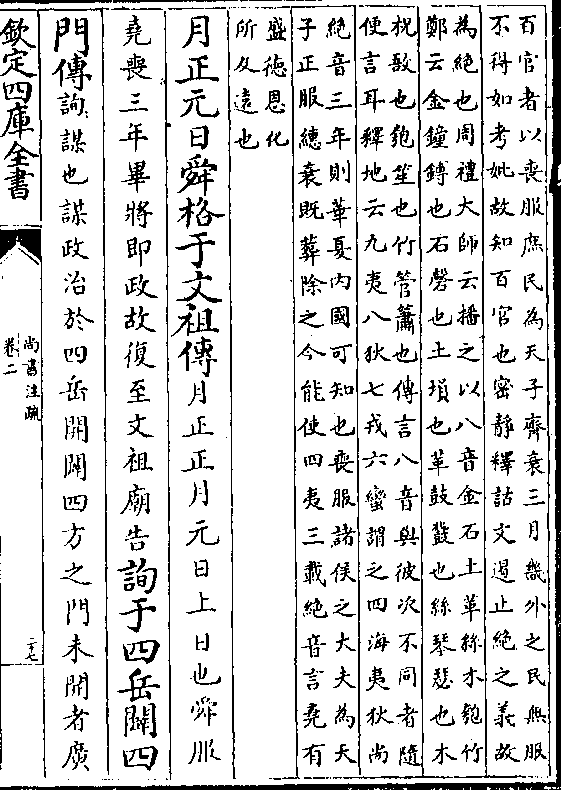 百官者以喪服庶民為天子齊衰三月畿外之民無服
不得如考妣故知百官也密靜釋詁文遏止絶之義故
為絶也周禮大師云播之以八音金石土革絲木匏竹
鄭云金鐘鎛也石磬也土塤也革鼓鼗也絲琴瑟也木
柷敔也匏笙也竹管簫也傳言八音與彼次不同者隨
便言耳釋地云九夷八狄七戎六蠻謂之四海夷狄尚
絶音三年則華夏内國可知也喪服諸侯之大夫為天
子正服繐衰既葬除之今能使四夷三載絶音言堯有
盛德恩化
所及遠也
月正元日舜格于文祖傳月正正月元日上日也舜服
堯喪三年畢將即政故復至文祖廟告詢于四岳闢四
門傳詢謀也謀政治於四岳開闢四方之門未開者廣
欽定四庫全書
尚書注疏
卷二
二十七